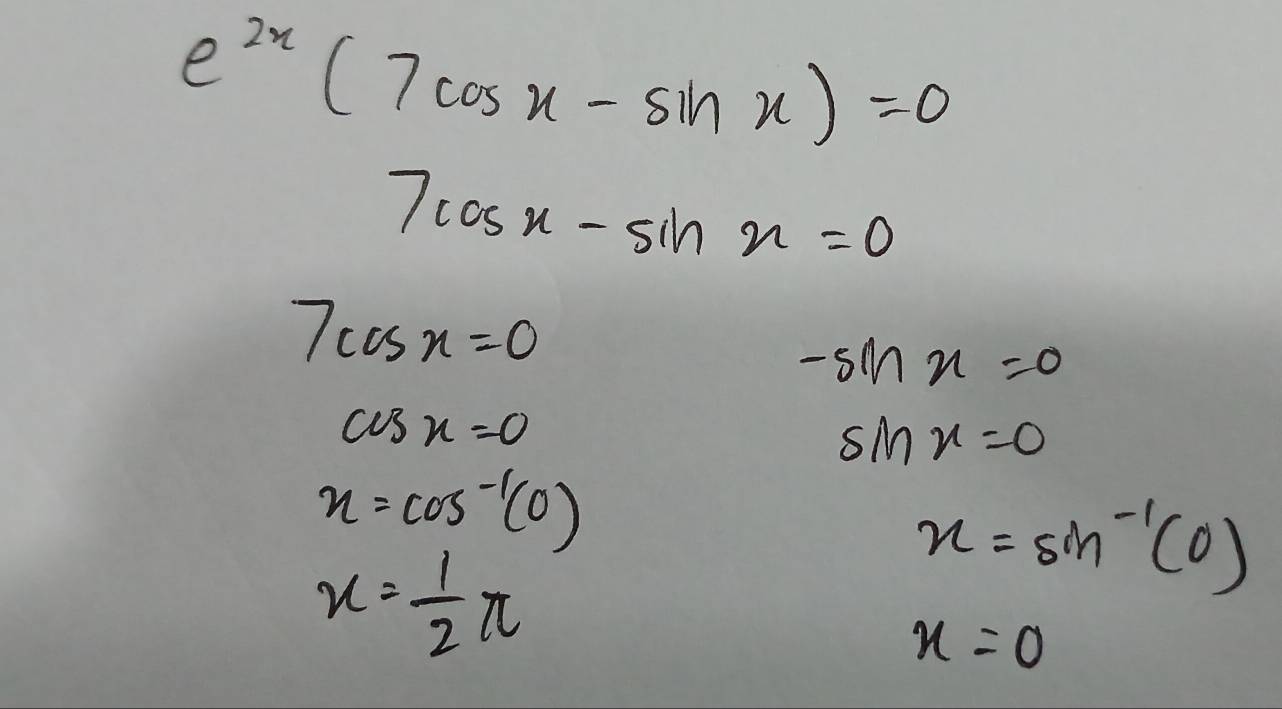 e^{2x} (7 cos x - sin x) = 0
7 cos x - sin x = 0
7 cos x = 0
cos x = 0
x = cos^{-1}(0)
x = \frac{1}{2} π
-sin x = 0
sin x = 0
x = sin^{-1}(0)
x = 0